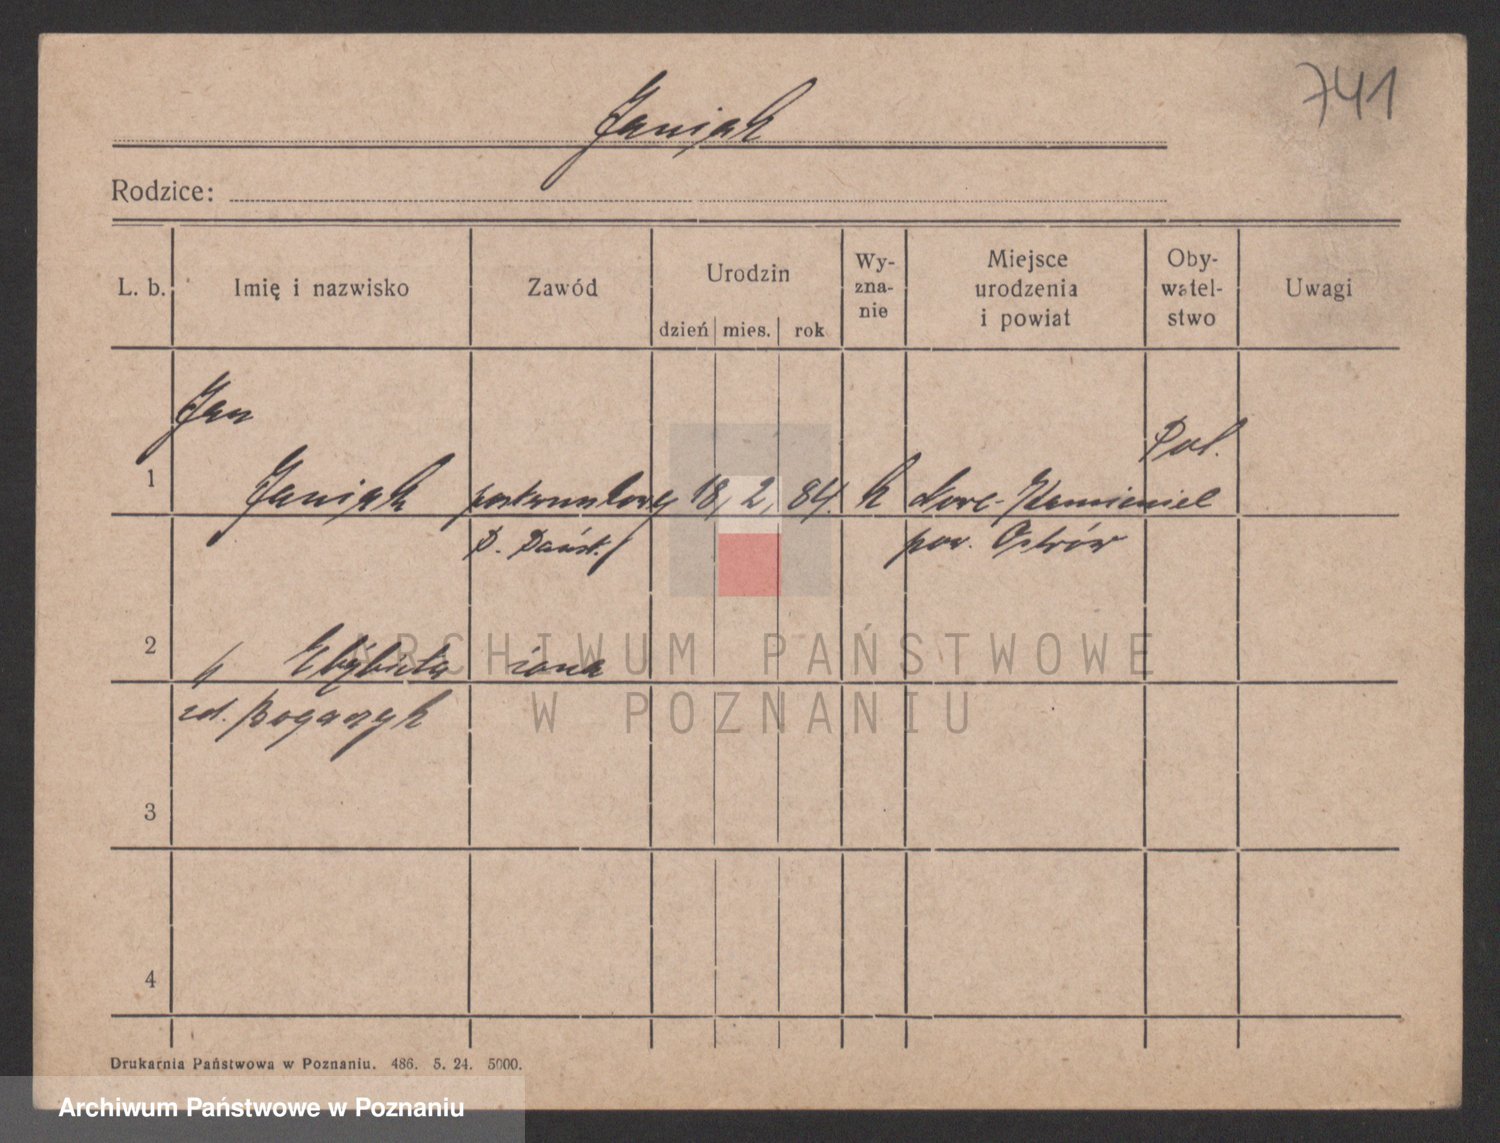 741
Janiak
Rodzice:
L. b. Imię i nazwisko Zawód Urodzin dzień mies. rok Wy-zna-nie Miejsce urodzenia i powiat Oby-watel-stwo Uwagi
Jan
Pol.
1 Janiak 18, 2, 84. k Kamieniec
pow. Ostrów
2 " Elżbieta żona
zd. Bogaczyk
3
4
Drukarnia Państwowa w Poznaniu. 486. 5. 24. 5000.
ARCHIWUM PAŃSTWOWE
W POZNANIU
Archiwum Państwowe w Poznaniu